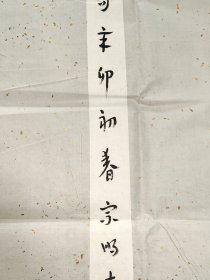 辛卯初春宗明